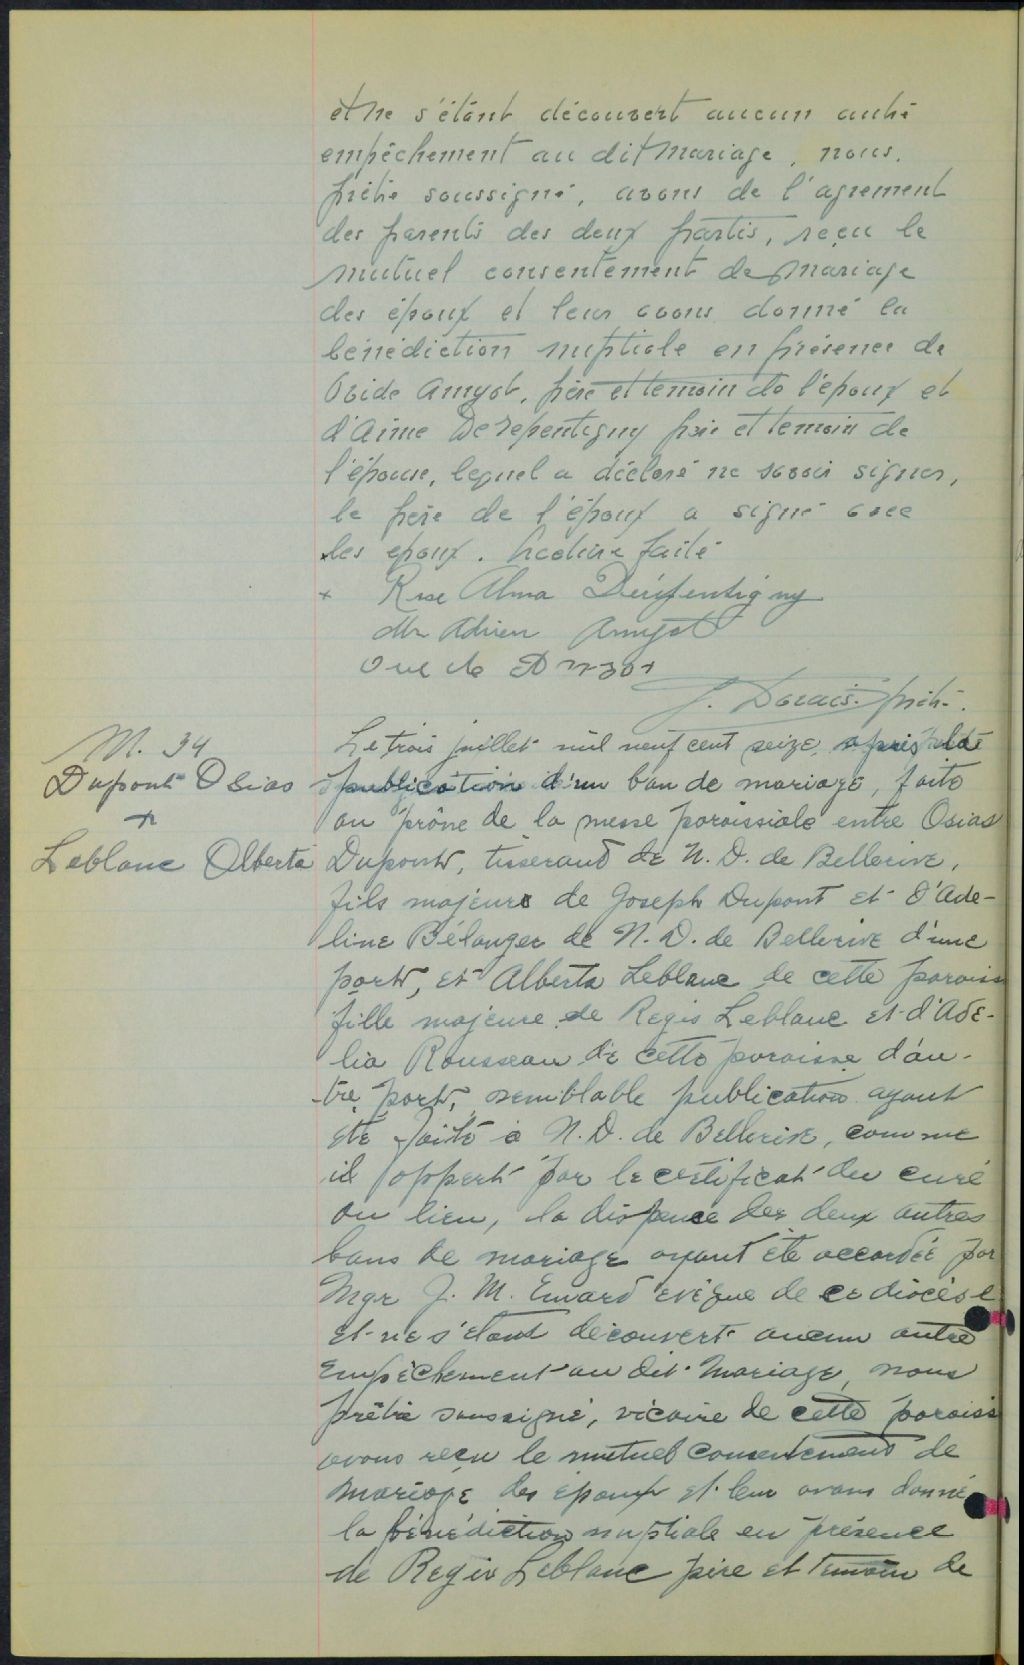 et ne s'étant découvert aucun autre
empêchement au dit mariage, nous,
prêtre soussigné, avons de l'agrement
des parents des deux partis, reçu le
mutuel consentement de mariage
des époux et leur avons donné la
bénédiction nuptiale en présence de
Ovide Amyot, père et temoin de l'époux et
d'Aimé Derepentigny père et temoin de
l'épouse, lequel a déclaré ne savoir signer,
le père de l'époux a signé avec
les epoux. Lecture faite
x Rose Alma Derepentigny
Mr Adrien Amyot
J. Dorais. prêtre.
M. 34
Dupont Osias
+
Leblanc Alberta
Le trois juillet mil neuf cent seize, après la
publication d'un ban de mariage, faite
au prône de la messe paroissiale entre Osias
Dupont, tisserand de N. D. de Bellerive,
fils majeur de Joseph Dupont et d'Ade-
line Bélanger de N. D. de Bellerive d'une
part, et Alberta Leblanc de cette paroiss
fille majeure de Regis Leblanc et d'Adé-
lia Rousseau de cette paroisse d'au-
tre part, semblable publication ayant
été faite à N. D. de Bellerive, comme
il appert par le certificat du curé
du lieu, la dispence des deux autres
bans de mariage ayant été accordée par
Mgr J. M. Emard évêque de ce diocèse
et ne s'étant découvert aucun autre
empêchement au dit mariage, nous
prêtre soussigné, vicaire de cette paroiss
avons reçu le mutuel consentement de
mariage des époux et leur avons donné
la bénédiction nuptiale en présence
de Regis Leblanc père et temoin de